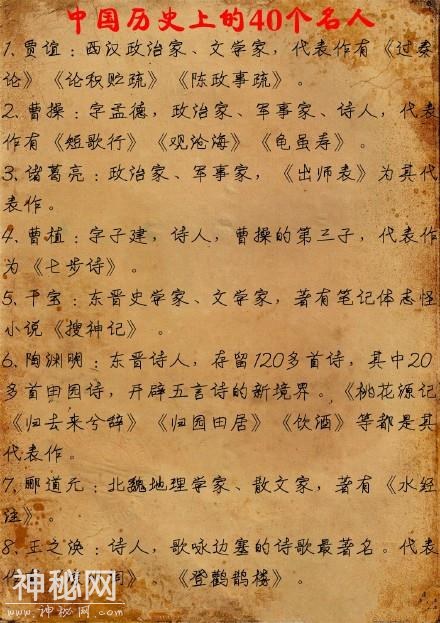 中国历史上的40个名人
1.贾谊：西汉政治家、文学家，代表作有《过秦
论》《论积贮疏》《陈政事疏》。
2.曹操：字孟德，政治家、军事家、诗人，代表
作有《短歌行》《观沧海》《龟虽寿》。
3.诸葛亮：政治家、军事家，《出师表》为其代
表作。
4.曹植：字子建，诗人，曹操的第三子，代表作
为《七步诗》。
5.干宝：东晋史学家、文学家，著有笔记体志怪
小说《搜神记》。
6.陶渊明：东晋诗人，存留120多首诗，其中20
多首田园诗，开辟五言诗的新境界。《桃花源记》
《归去来兮辞》《归园田居》《饮酒》等都是其
代表作。
7.郦道元：北魏地理学家、散文家，著有《水经
注》。
8.王之涣：诗人，歌咏边塞的诗歌最著名。代表
作 词》。《登鹳鹊楼》。
神秘网
www.神秘网.com